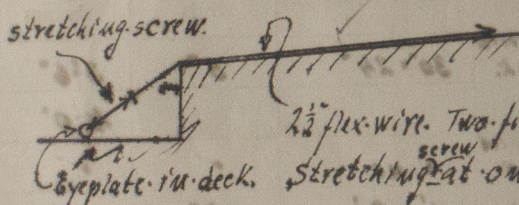 stretching.screw.
2½" flex.wire. Two.
screw
Eyeplate.in.deck. Stretching at